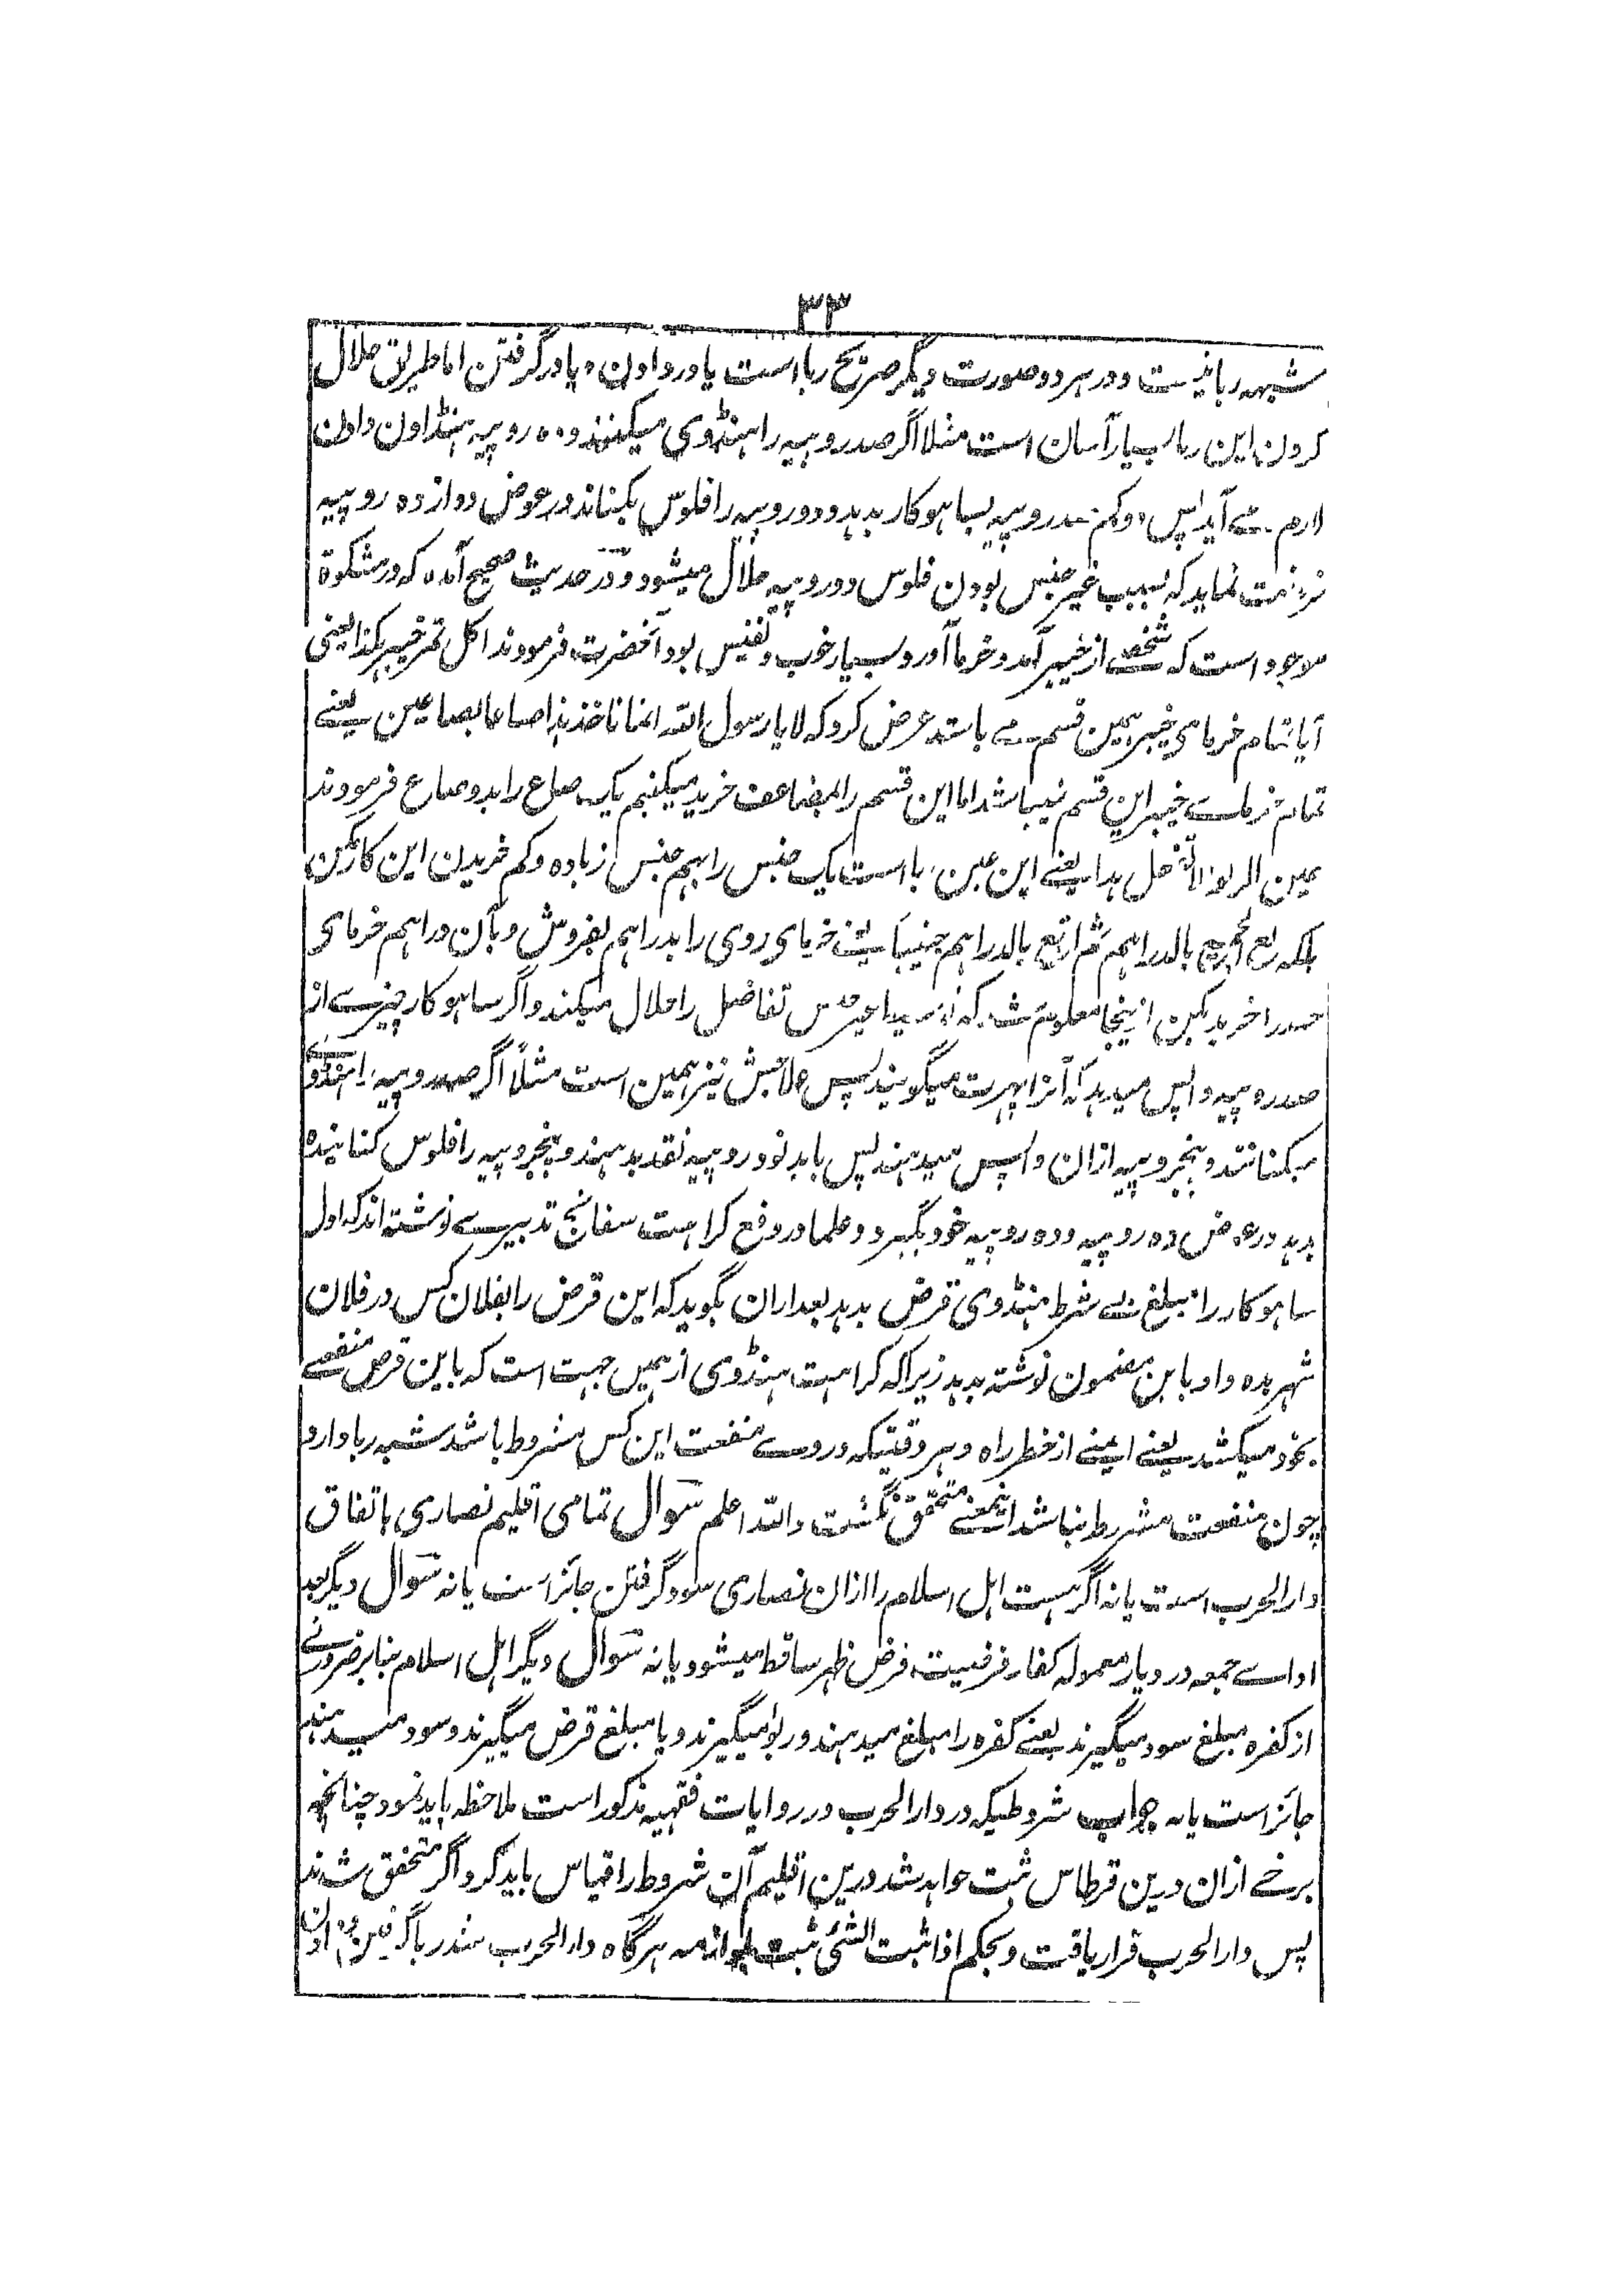 ۳۳
شبهه ربا نیست و در هر دو صورت دیگر صریح ربا است یا در دادن و یا در گرفتن اما طریق حلال
کردن این ربا بسیار آسان است مثلا اگر صد روپیه را هنڈوی میکنند و ده روپیه هنڈاون دادن
لازم مے آید پس دو کم صد روپیه بساهوکار بدهد و دو روپیه را فلوس بکناند در عوض دوازده روپیه
نماید که بسبب غیر جنس بودن فلوس دو روپیه حلال میشود و در حدیث صحیح آمده که در مشکوة
موجود است که شخصے از خیبر آمد و خرما آورد بسیار خوب و نفیس بود آنحضرت فرمودند اکل تمر خیبر هکذا یعنی
آیا تمام خرمای خیبر همین قسم مے باشد عرض کرد که لا یا رسول الله انما ناخذ هذا صاعا بصاعین یعنے
تمام خرمائے خیبر این قسم نمیباشد اما این قسم را بمضاعف خرید میکنیم یک صاع را بدو صاع فرمودند
عین الربوا لا تفعل هذا یعنے این عین ربا است یک جنس را بهم جنس زیاده و کم خریدن این کار مکن
بلکه بع الجمع بالدراهم ثم ابتع بالدراهم جنیبا یعنے خرمای ردی را بدراهم بفروش و بآن دراهم خرمای
را خرید بکن ازینجا معلوم شد که تفاضل را حلال میکند و اگر ساهوکار چیزے از
صد روپیه واپس میدهد که آنرا پهرت میگویند پس علاجش نیز همین است مثلاً اگر صد روپیه را هنڈوی
میکنانند و پنجروپیه ازان واپس میدهند پس باید نود روپیه نقد بدهند و پنجروپیه را فلوس کنانیده
بدهد در عوض ده روپیه و ده روپیه خود بگیرد و علما در دفع کراهت سفاتج تدبیرے نوشته اند که اول
ساهوکار را مبلغ بے شرط هنڈوی قرض بدهد بعد ازان بگوید که این قرض را بفلان کس در فلان
شهر بده و او باین مضمون نوشته بدهد زیرا که کراهت هنڈوی از همین جهت است که باین قرض منفعے
بخود میکشد یعنے ایمنے از خطر راه و هر وقتیکه دروے منفعت این کس مشروط باشد شبهه ربا دارد
چون منفعت مشروط نباشد اینمعنے متحقق نگشت والله اعلم سوال تمامی اقلیم نصاری باتفاق
دار الحرب است یا نه اگر هست اهل اسلام را ازان نصاری سود گرفتن جائز است یا نه سوال دیگر بعد
اداے جمعه در دیار معموله کفار فرضیت فرض ظهر ساقط میشود یا نه سوال دیگر اهل اسلام بنابر ضرورتے
از کفره مبلغ سود میگیرند یعنے کفره را مبلغ میدهند و ربوا میگیرند و یا مبلغ قرض میگیرند و سود میدهند
جائز است یا نه جواب شروطیکه در دار الحرب در روایات فقهیه مذکور است ملاحظه باید نمود چنانچه
برخے ازان درین قرطاس ثبت خواهد شد درین اقلیم آن شروط را قیاس باید کرد اگر متحقق شدند
پس دار الحرب قرار یافت و بحکم اذا ثبت الشئ ثبت بلوازمه هرگاه دار الحرب شد ربا گرفتن